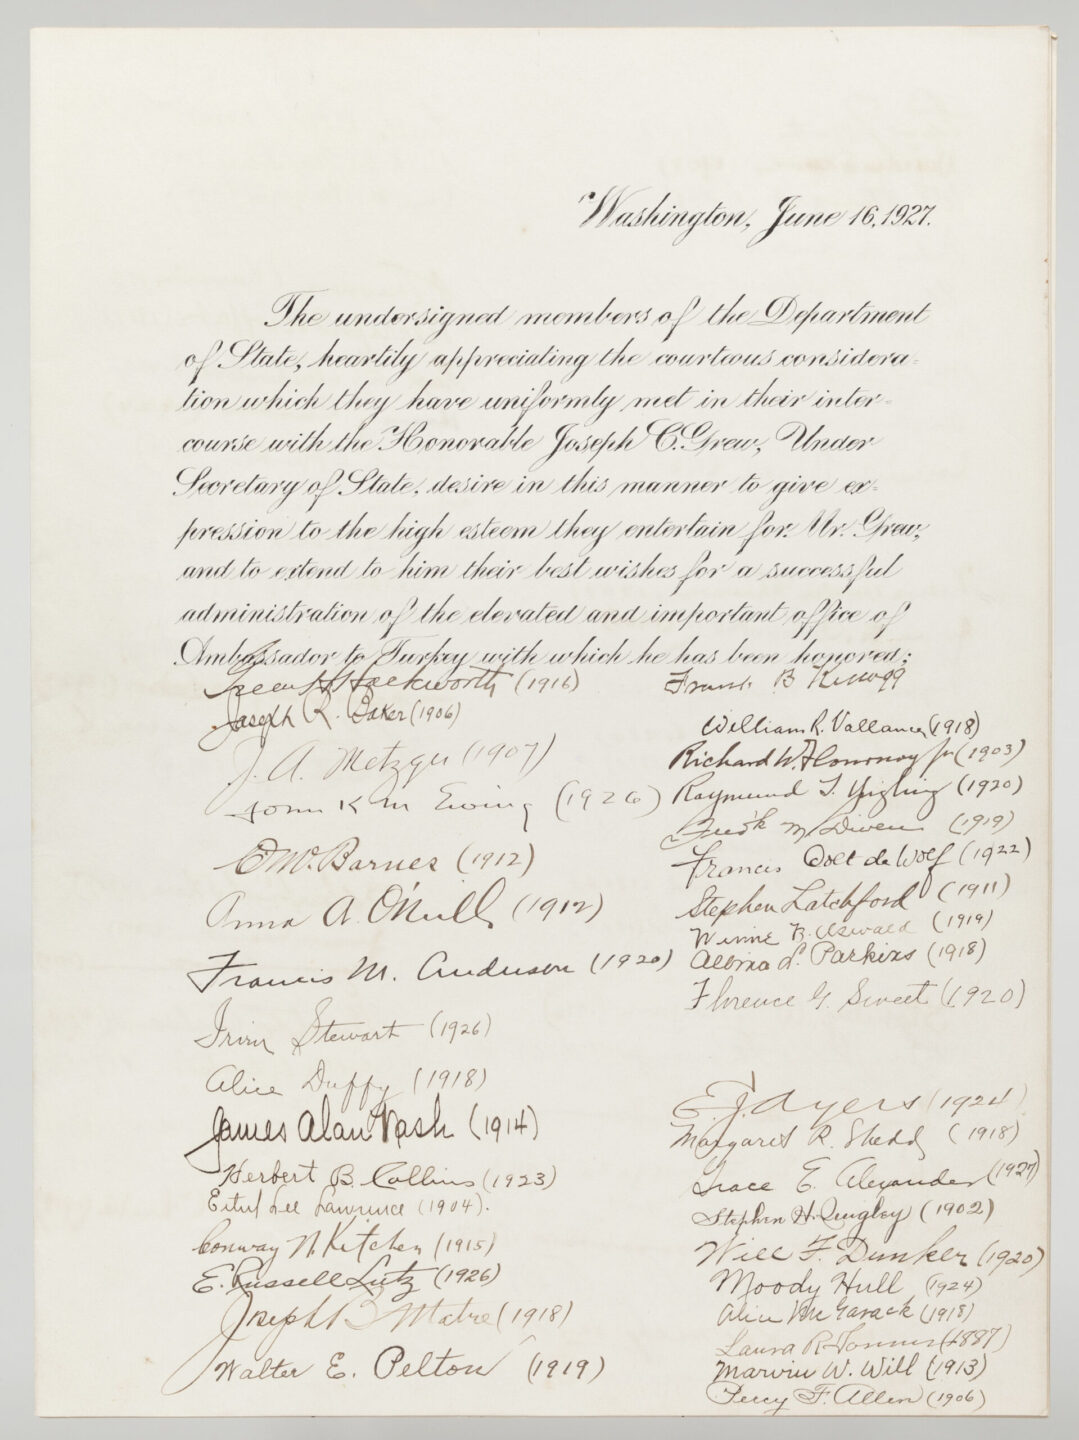 Washington, June 16, 1927.
The undersigned members of the Department
of State, heartily appreciating the courteous considera-
tion which they have uniformly met in their inter-
course with the Honorable Joseph C. Grew, Under
Secretary of State, desire in this manner to give ex-
pression to the high esteem they entertain for Mr. Grew,
and to extend to him their best wishes for a successful
administration of the elevated and important office of
Ambassador to Turkey with which he has been honored:
Green H. Hackworth (1916)
Joseph R. Baker (1906)
J. A. Metzger (1907)
(1926)
Barnes (1912)
Anna A. O'Neill (1912)
Francis M. Anderson (1920)
Irvin Stewart (1926)
Alice Duffy (1918)
James Alan Nash (1914)
Herbert B. Collins (1923)
Ethel Lee Lawrence (1904).
Conway N. Kitchen (1915)
E. Russell Lutz (1926)
Joseph (1918)
Walter E. Pelton (1919)
Frank B Kellogg
William R. Vallance (1918)
Richard W. Flournoy Jr (1903)
Raymund T. Yingling (1920)
(1919)
Francis Colt de Wolf (1922)
Stephen Latchford (1911)
Oswald (1919)
L. Parkins (1918)
Florence G. Sweet (1920)
E. J. Ayers (1924)
Margaret R. Shedd (1918)
Grace E. Alexander (1927)
Stephen H. Quigley (1902)
Will F. Dunker (1920)
Moody Hull (1924)
(1918)
Laura R. (1897)
Marvin W. Will (1913)
Percy F. Allen (1906)